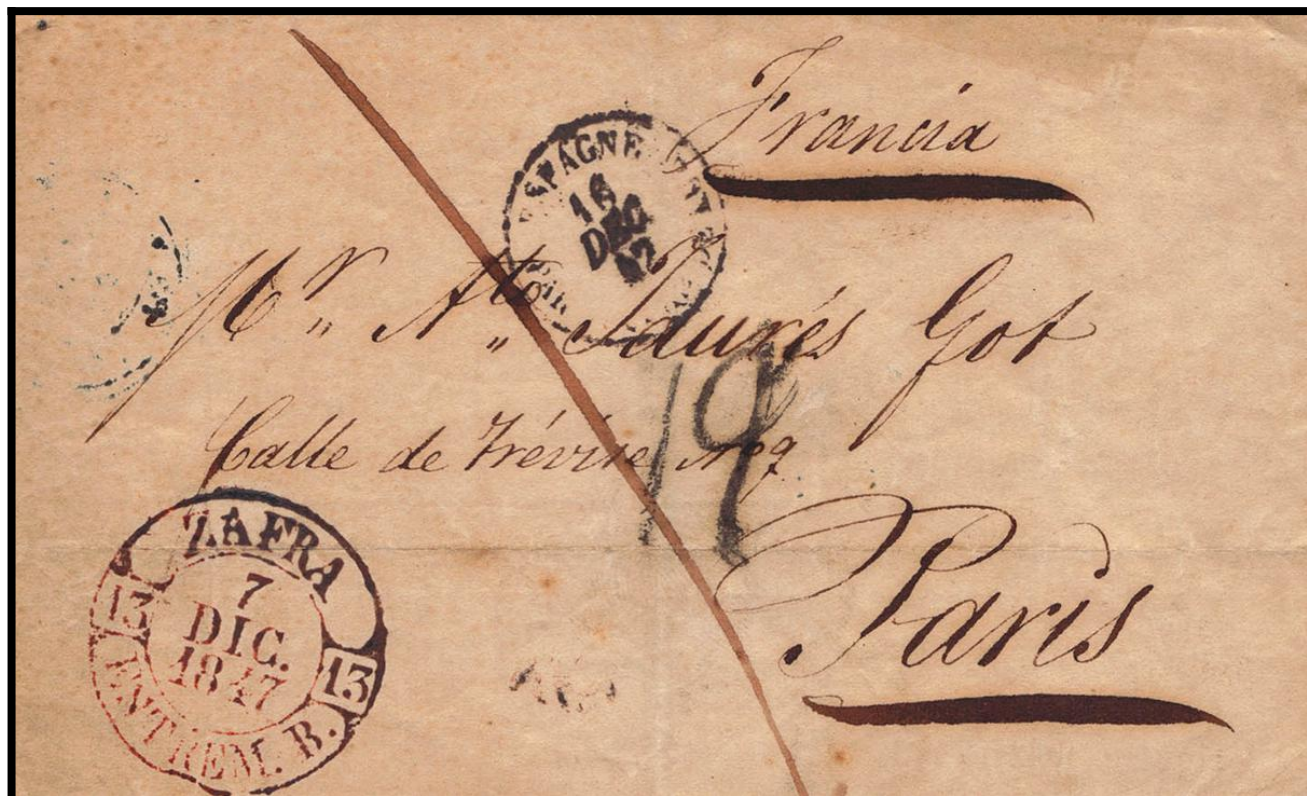 Francia
ESPAGNE
16
DEC
47
Mr. Ato. Laurés Got
Calle de Trévise No 9
19
Paris
ZAFRA
13 7 DIC. 1847 13
ESTREM. B.